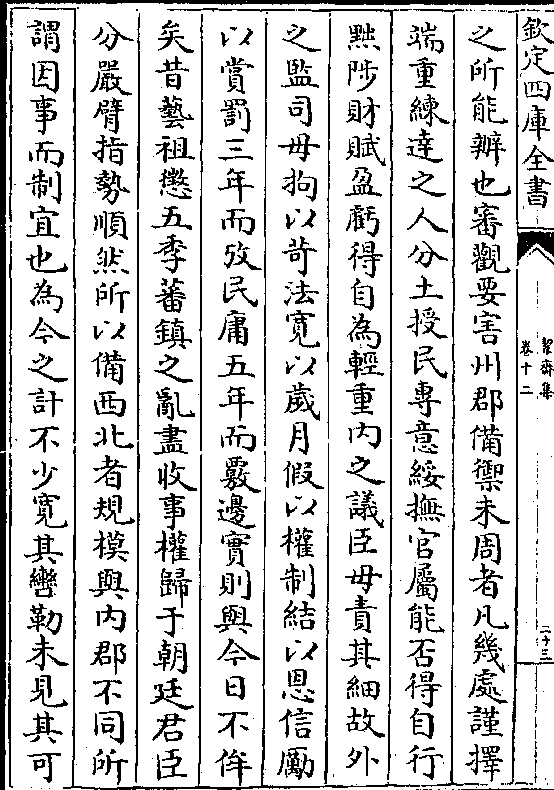 欽定四庫全書
絜齋集
卷十二
二十三
之所能辦也審觀要害州郡備禦未周者凡幾處謹擇
端重練達之人分土授民專意綏撫官屬能否得自行
黜陟財賦盈虧得自為輕重内之議臣毋責其細故外
之監司毋拘以苛法寛以歲月假以權制結以恩信勵
以賞罰三年而攷民庸五年而覈邊實則與今日不侔
矣昔藝祖懲五季蕃鎮之亂盡收事權歸于朝廷君臣
分嚴臂指勢順然所以備西北者規模與内郡不同所
謂因事而制宜也為今之計不少寛其轡勒未見其可